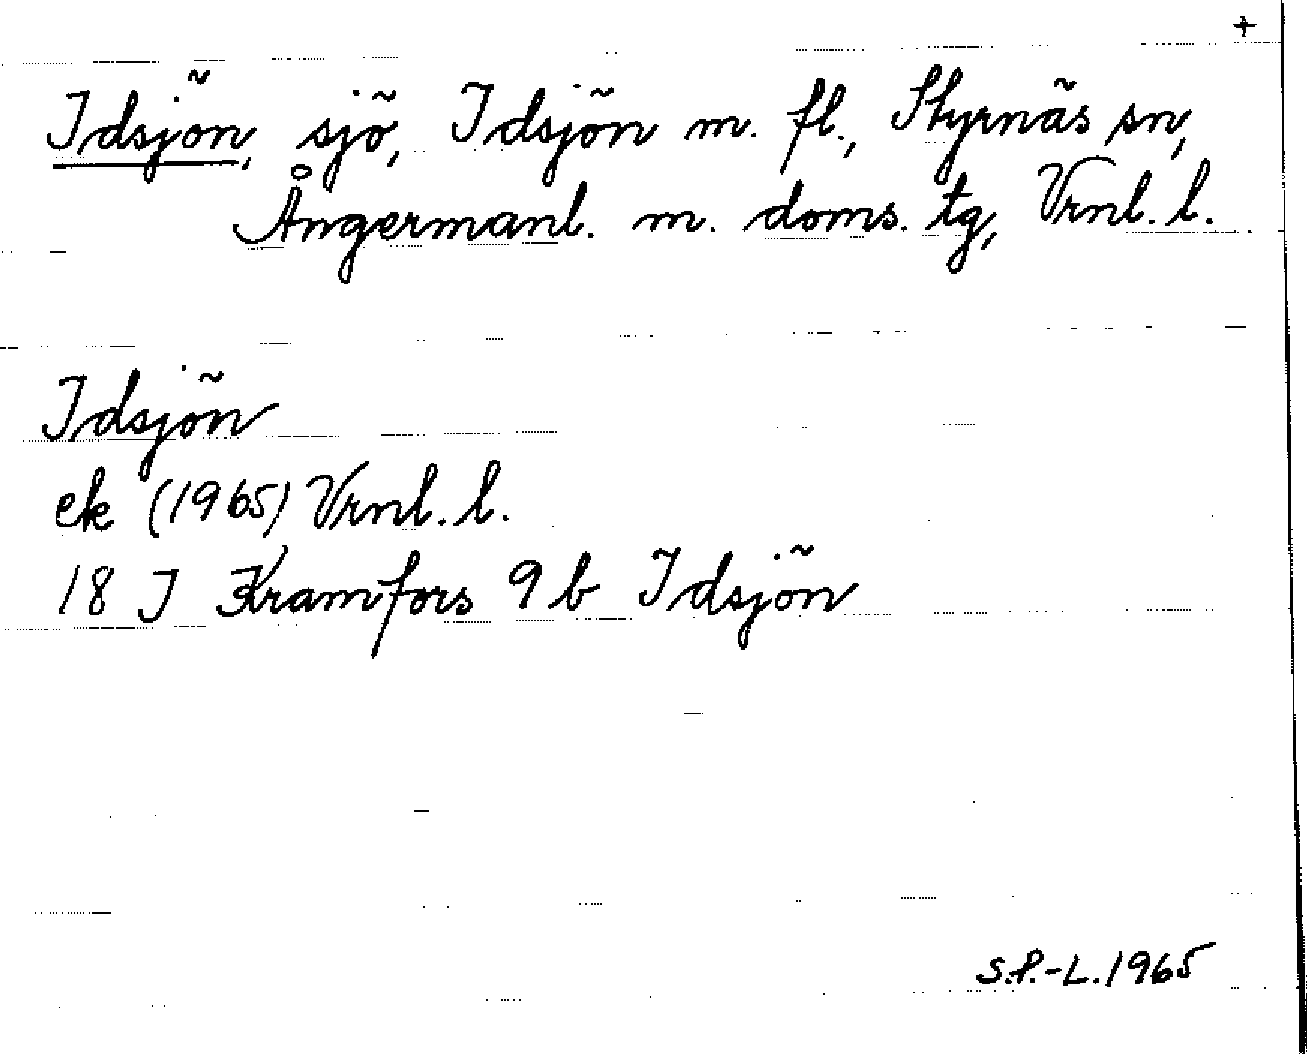 +
Idsjön, sjö, Idsjön m. fl., Styrnäs sn,
Ångermanl. m. doms. tg, Vrnl. l.
Idsjön
ek (1965) Vrnl. l.
18 J Kramfors 9 b Idsjön
S.P.-L. 1965